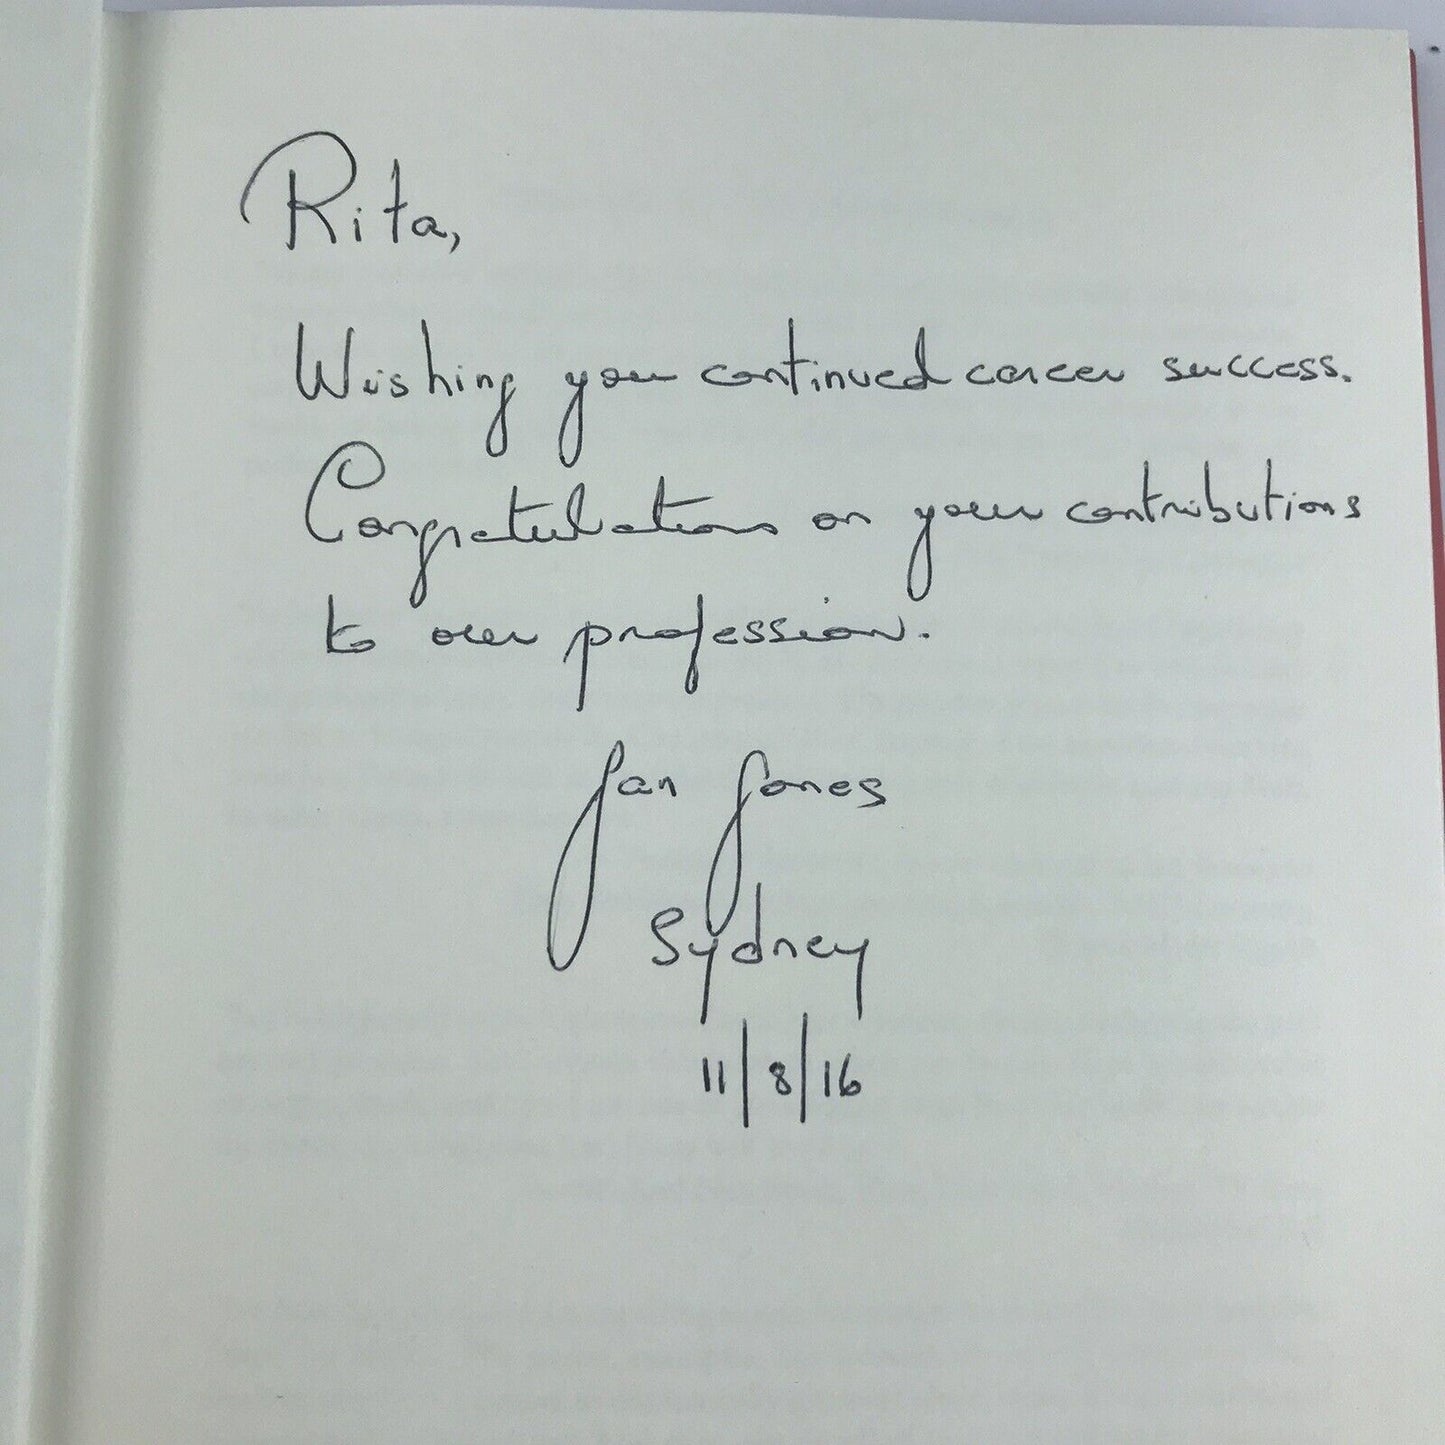 Rita,
Wishing you continued career success.
Congratulations on your contributions
to our profession.
Jan Jones
Sydney
11/8/16